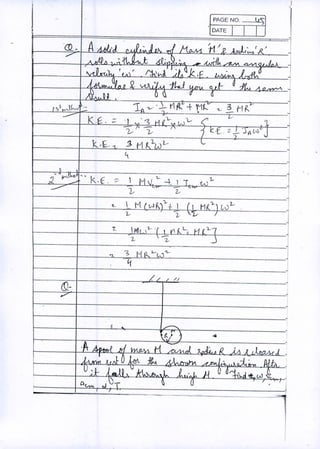 PAGE NO. 45
DATE
Q. A solid cylinder of Mass 'M' & radius 'R'
rolls without slipping with an angular
velocity 'ω'. Find its K.E. using both
formulae & verify that you get the same
result.
1st method - I_A = 1/2 MR² + MR² = 3/2 MR²
K.E. = 1/2 × 3/2 MR² × ω² { KE = 1/2 I_A ω² }
K.E. = 3/4 MR²ω²
2nd method - K.E. = 1/2 MV²cm + 1/2 Icm ω²
= 1/2 M(ωR)² + 1/2 (1/2 MR²) ω²
= 1/2 ω² [1/2 MR² + MR²]
= 3/4 MR²ω²
Q.
A spool of mass M and radius R is released
from rest for the shown configuration. After
it falls through height H. Find ω,
acm, α, T.